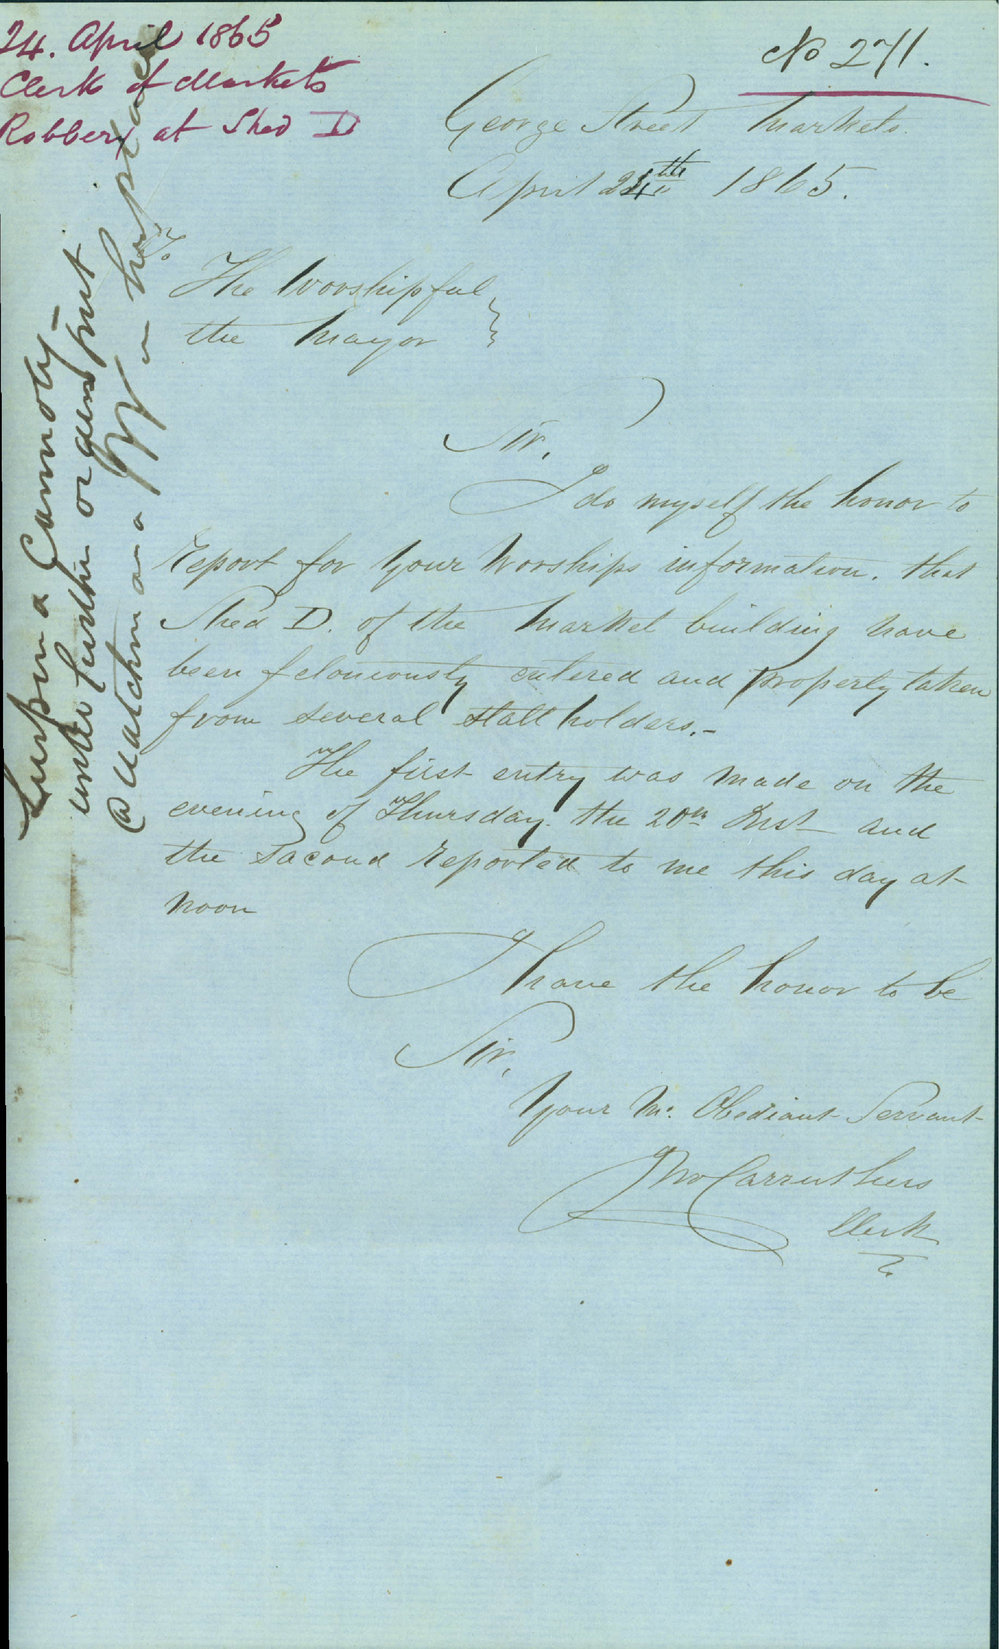 24. April 1865
Clerk of Markets
Robbery at Shed D
No 271.
George Street Markets.
April 24th 1865.
To
The Worshipful
the Mayor
Sir,
I do myself the honor to
report for Your Worships information. that
Shed D. of the Market building have
been feloniously entered and property taken
from several stall holders.-
The first entry was made on the
evening of Thursday. the 20th Inst and
the Sacond reported to me this day at
noon
I have the honor to be
Sir,
Your Mo. Obediant Servant
Jno Carruthers
Clerk
Suspend Connolly
until further orders put
a Watchman on in his place